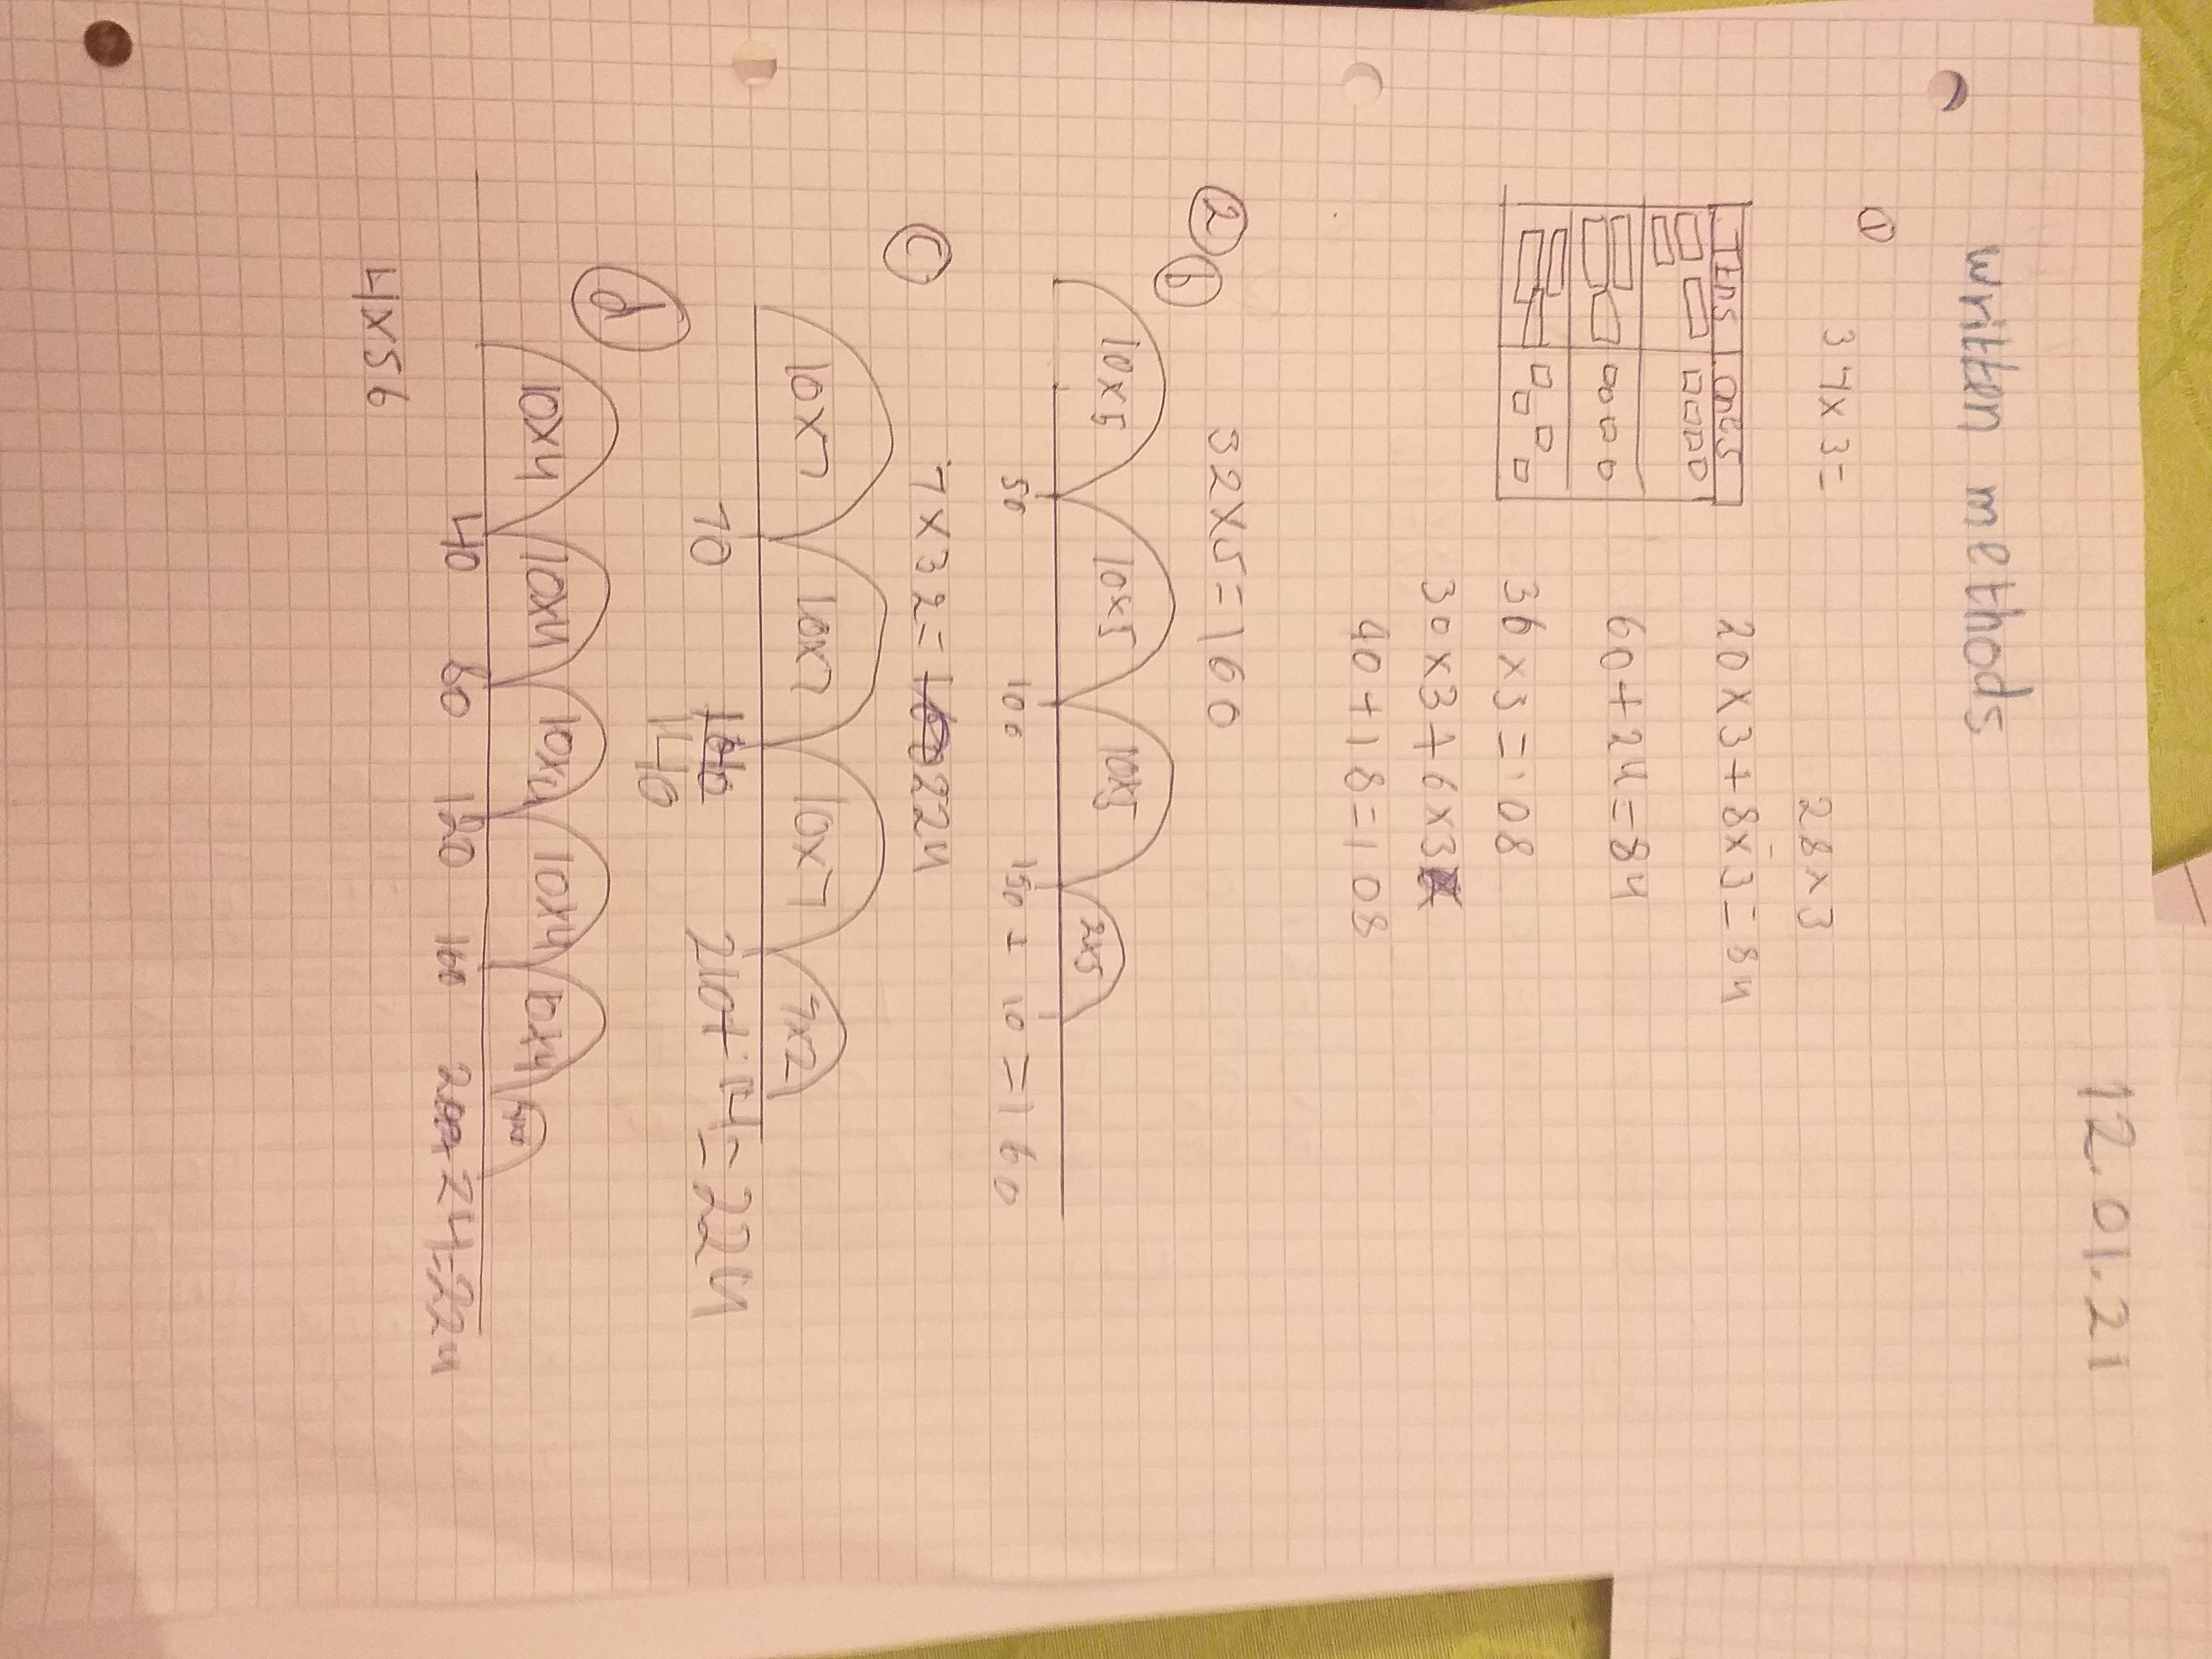 12.01.21
written methods
①
34x3=
28x3
Tens Ones
20x3+8x3=84
60+24=84
36x3=108
30x3+6x3
90+18=108
② b
32x5=160
10x5 10x5 10x5 2x5
50 100 150 + 10 =160
c
7x32= 224
10x7 10x7 10x7 7x2
70 140 210+14=224
d
10x4 10x4 10x4 10x4 10x4
40 80 120 160 24=224
4x56